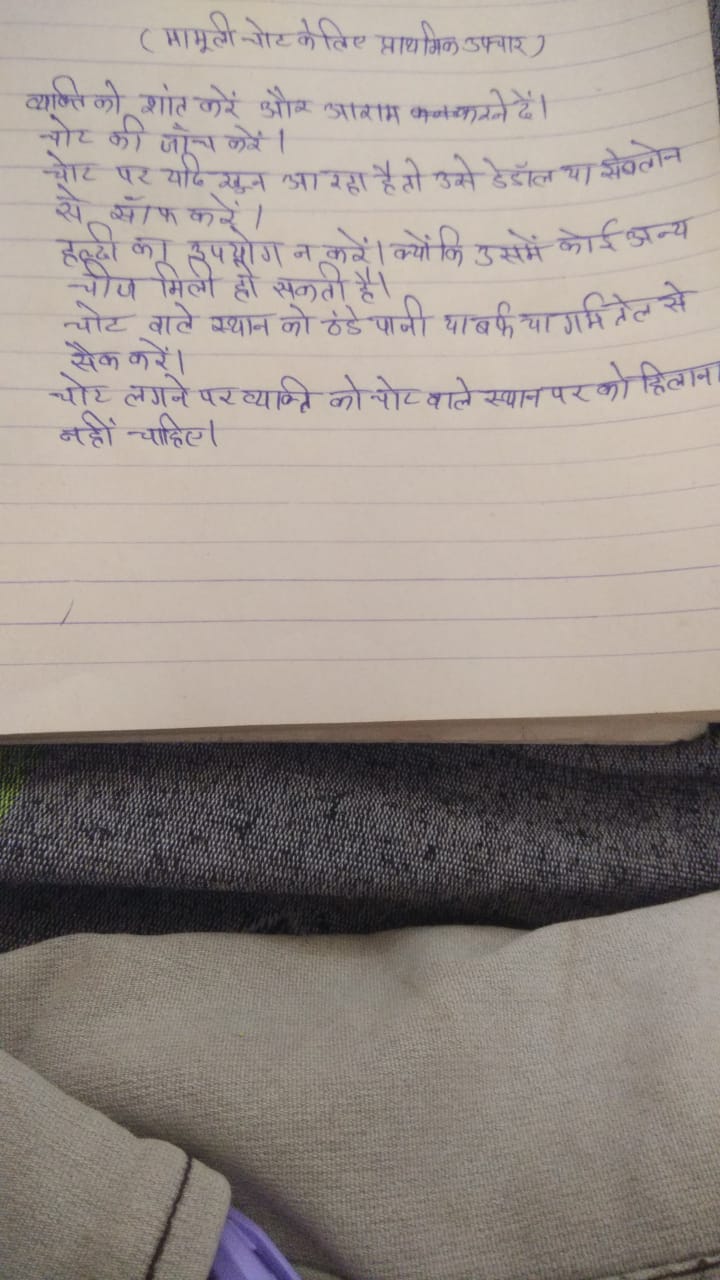 (मामूली चोट के लिए प्राथमिक उपचार)
व्यक्ति को शांत करें और आराम करने दें।
चोट की जाँच करें।
चोट पर यदि खुन आ रहा है तो उसे डेडॉल या सेवलोन
से सॉफ करें।
हल्दी का उपयोग न करें। क्योंकि उसमें कोई अन्य
चीज मिली हो सकती है।
चोट वाले स्थान को ठंडे पानी या बर्फ या गर्म तेल से
सैक करें।
चोट लगने पर व्यक्ति को चोट वाले स्थान पर को हिलाना
नहीं चाहिए।